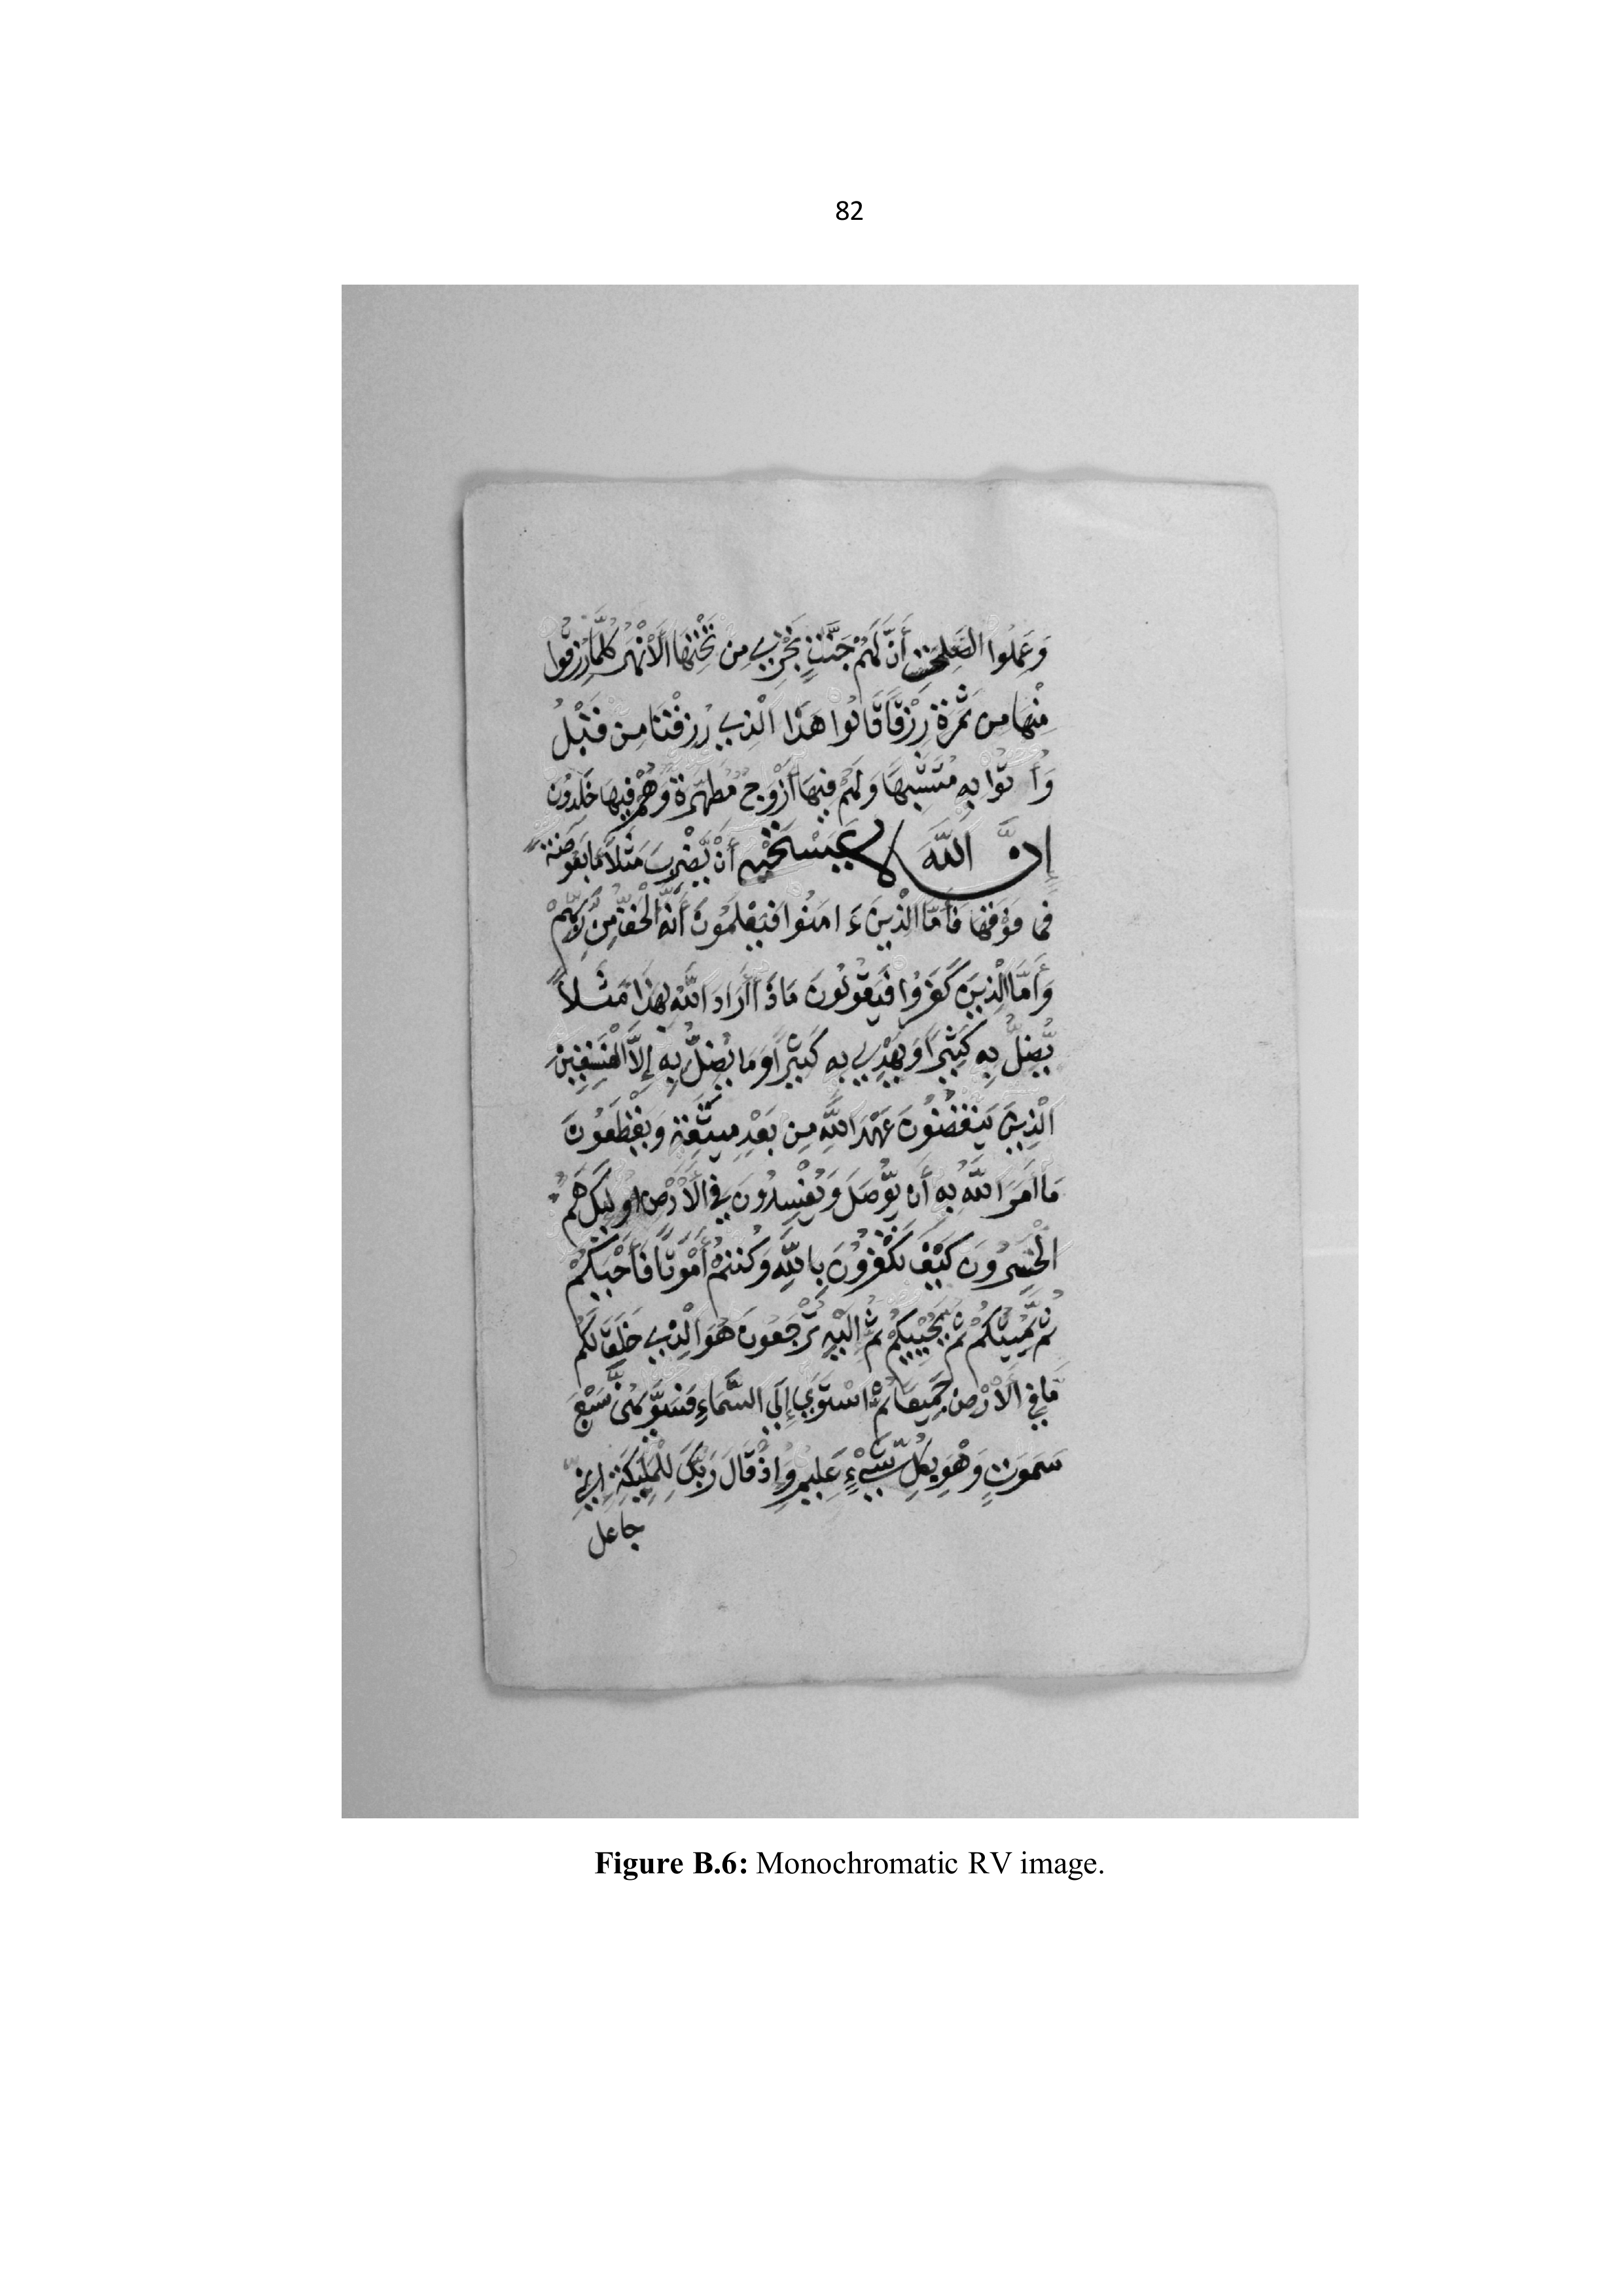 82
وَعَمِلُوا الصَّلِحَتِ أَنَّ لَهُمْ جَنَّتٍ تَجْرِي مِن تَحْتِهَا الْأَنْهَرُ كُلَّمَا رُزِقُوا
مِنْهَا مِن ثَمَرَةٍ رِّزْقًا قَالُوا هَذَا الَّذِي رُزِقْنَا مِن قَبْلُ
وَأُتُوا بِهِ مُتَشَبِهًا وَلَهُمْ فِيهَا أَزْوَجٌ مُّطَهَّرَةٌ وَهُمْ فِيهَا خَلِدُونَ
إِنَّ اللَّهَ لَا يَسْتَحْيِ أَنْ يَّضْرِبَ مَثَلًا مَّا بَعُوضَةً
فَمَا فَوْقَهَا فَأَمَّا الَّذِينَ ءَامَنُوا فَيَعْلَمُونَ أَنَّهُ الْحَقُّ مِن رَّبِّهِمْ
وَأَمَّا الَّذِينَ كَفَرُوا فَيَقُولُونَ مَاذَا أَرَادَ اللَّهُ بِهَذَا مَثَلًا
يُّضِلُّ بِهِ كَثِيرًا وَيَهْدِي بِهِ كَثِيرًا وَمَا يُضِلُّ بِهِ إِلَّا الْفَسِقِينَ
الَّذِينَ يَنقُضُونَ عَهْدَ اللَّهِ مِن بَعْدِ مِيثَقِهِ وَيَقْطَعُونَ
مَا أَمَرَ اللَّهُ بِهِ أَن يُّوصَلَ وَيُفْسِدُونَ فِي الْأَرْضِ أُولَئِكَ هُمُ
الْخَسِرُونَ كَيْفَ تَكْفُرُونَ بِاللَّهِ وَكُنتُمْ أَمْوَتًا فَأَحْيَكُمْ
ثُمَّ يُمِيتُكُمْ ثُمَّ يُحْيِيكُمْ ثُمَّ إِلَيْهِ تُرْجَعُونَ هُوَ الَّذِي خَلَقَ لَكُم
مَّا فِي الْأَرْضِ جَمِيعًا ثُمَّ اسْتَوَى إِلَى السَّمَاءِ فَسَوَّيهُنَّ سَبْعَ
سَمَوَتٍ وَهْوَ بِكُلِّ شَيْءٍ عَلِيمٌ وَإِذْ قَالَ رَبُّكَ لِلْمَلَئِكَةِ إِنِّي
جاعل
Figure B.6: Monochromatic RV image.